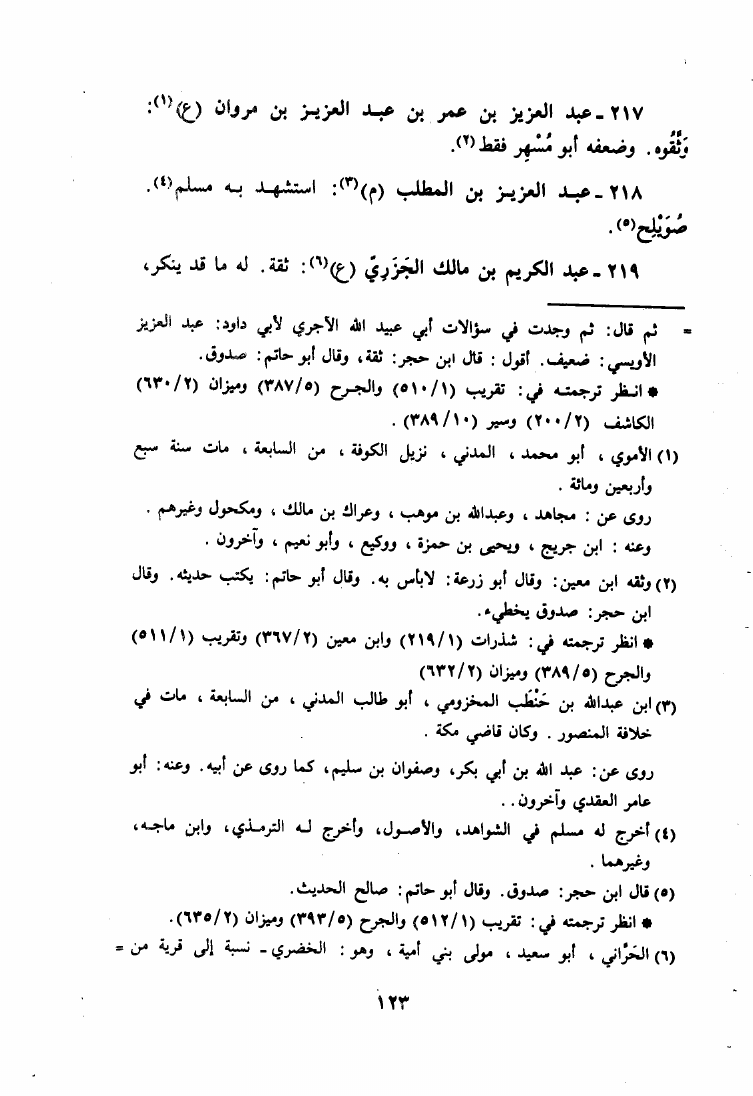 ٢١٧ - عبد العزيز بن عمر بن عبد العزيز بن مروان (ع)(١):
وَثَّقُوه. وضعفه أبو مُسْهِر فقط(٢).
٢١٨ - عبد العزيز بن المطلب (م)(٣): استشهد به مسلم(٤).
صُوَيْلِح(٥).
٢١٩ - عبد الكريم بن مالك الجَزَرِيّ (ع)(٦): ثقة. له ما قد ينكر،
= ثم قال: ثم وجدت في سؤالات أبي عبيد الله الآجري لأبي داود: عبد العزيز
الأويسي: ضعيف. أقول: قال ابن حجر: ثقة، وقال أبو حاتم: صدوق.
* انظر ترجمته في: تقريب (٥١٠/١) والجرح (٣٨٧/٥) وميزان (٦٣٠/٢)
الكاشف (٢٠٠/٢) وسير (٣٨٩/١٠).
(١) الأموي، أبو محمد، المدني، نزيل الكوفة، من السابعة، مات سنة سبع
وأربعين ومائة.
روى عن: مجاهد، وعبدالله بن موهب، وعراك بن مالك، ومكحول وغيرهم.
وعنه: ابن جريج، ويحيى بن حمزة، ووكيع، وأبو نعيم، وآخرون.
(٢) وثقه ابن معين: وقال أبو زرعة: لابأس به. وقال أبو حاتم: يكتب حديثه. وقال
ابن حجر: صدوق يخطيء.
* انظر ترجمته في: شذرات (٢١٩/١) وابن معين (٣٦٧/٢) وتقريب (٥١١/١)
والجرح (٣٨٩/٥) وميزان (٦٣٢/٢)
(٣) ابن عبدالله بن حَنْطَب المخزومي، أبو طالب المدني، من السابعة، مات في
خلافة المنصور. وكان قاضي مكة.
روى عن: عبد الله بن أبي بكر، وصفوان بن سليم، كما روى عن أبيه. وعنه: أبو
عامر العقدي وآخرون..
(٤) أخرج له مسلم في الشواهد، والأصول، وأخرج له الترمذي، وابن ماجه،
وغيرهما.
(٥) قال ابن حجر: صدوق. وقال أبو حاتم: صالح الحديث.
* انظر ترجمته في: تقريب (٥١٢/١) والجرح (٣٩٣/٥) وميزان (٦٣٥/٢).
(٦) الحَرَّاني، أبو سعيد، مولى بني أمية، وهو: الخضري - نسبة إلى قرية من =
١٢٣